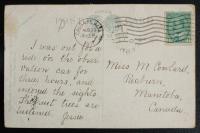 I was out for a
ride on the obser
vation car for
three hours, and
enjoyed the sights
The fruit trees are
Jessie
Miss M. Cowlard,
Manitoba,
Canada